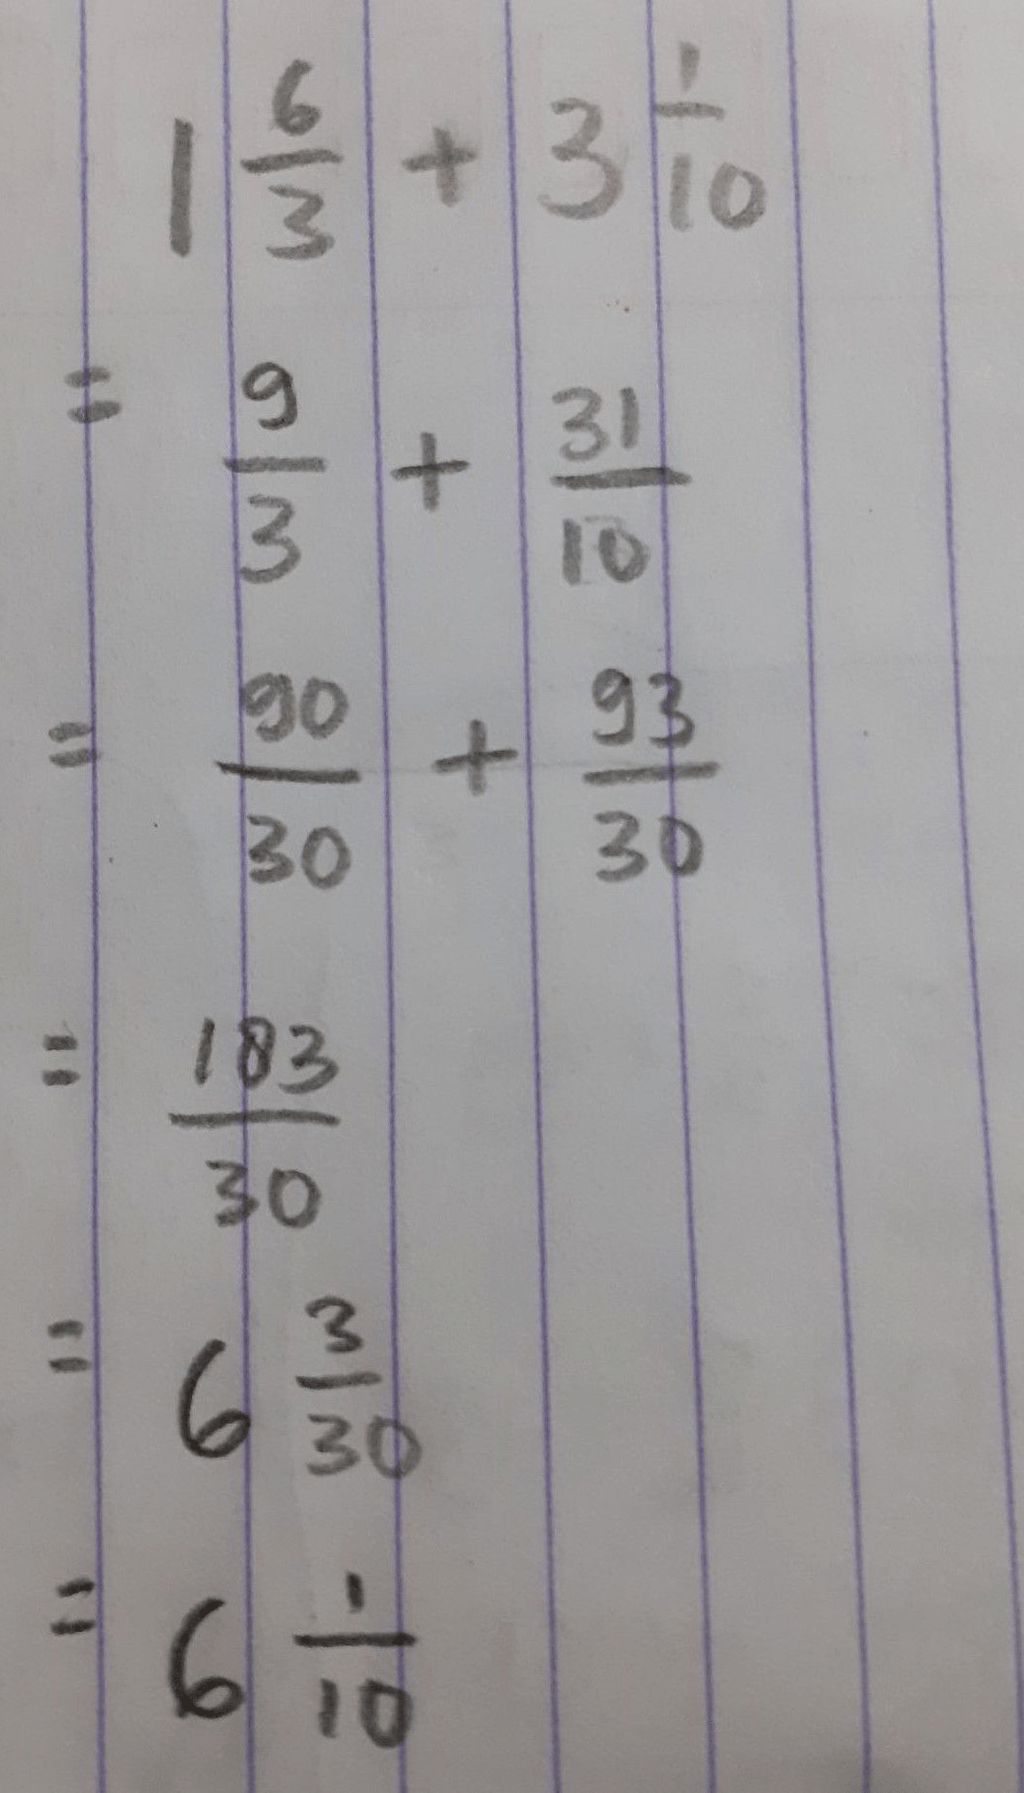 1 6/3 + 3 1/10
= 9/3 + 31/10
= 90/30 + 93/30
= 183/30
= 6 3/30
= 6 1/10